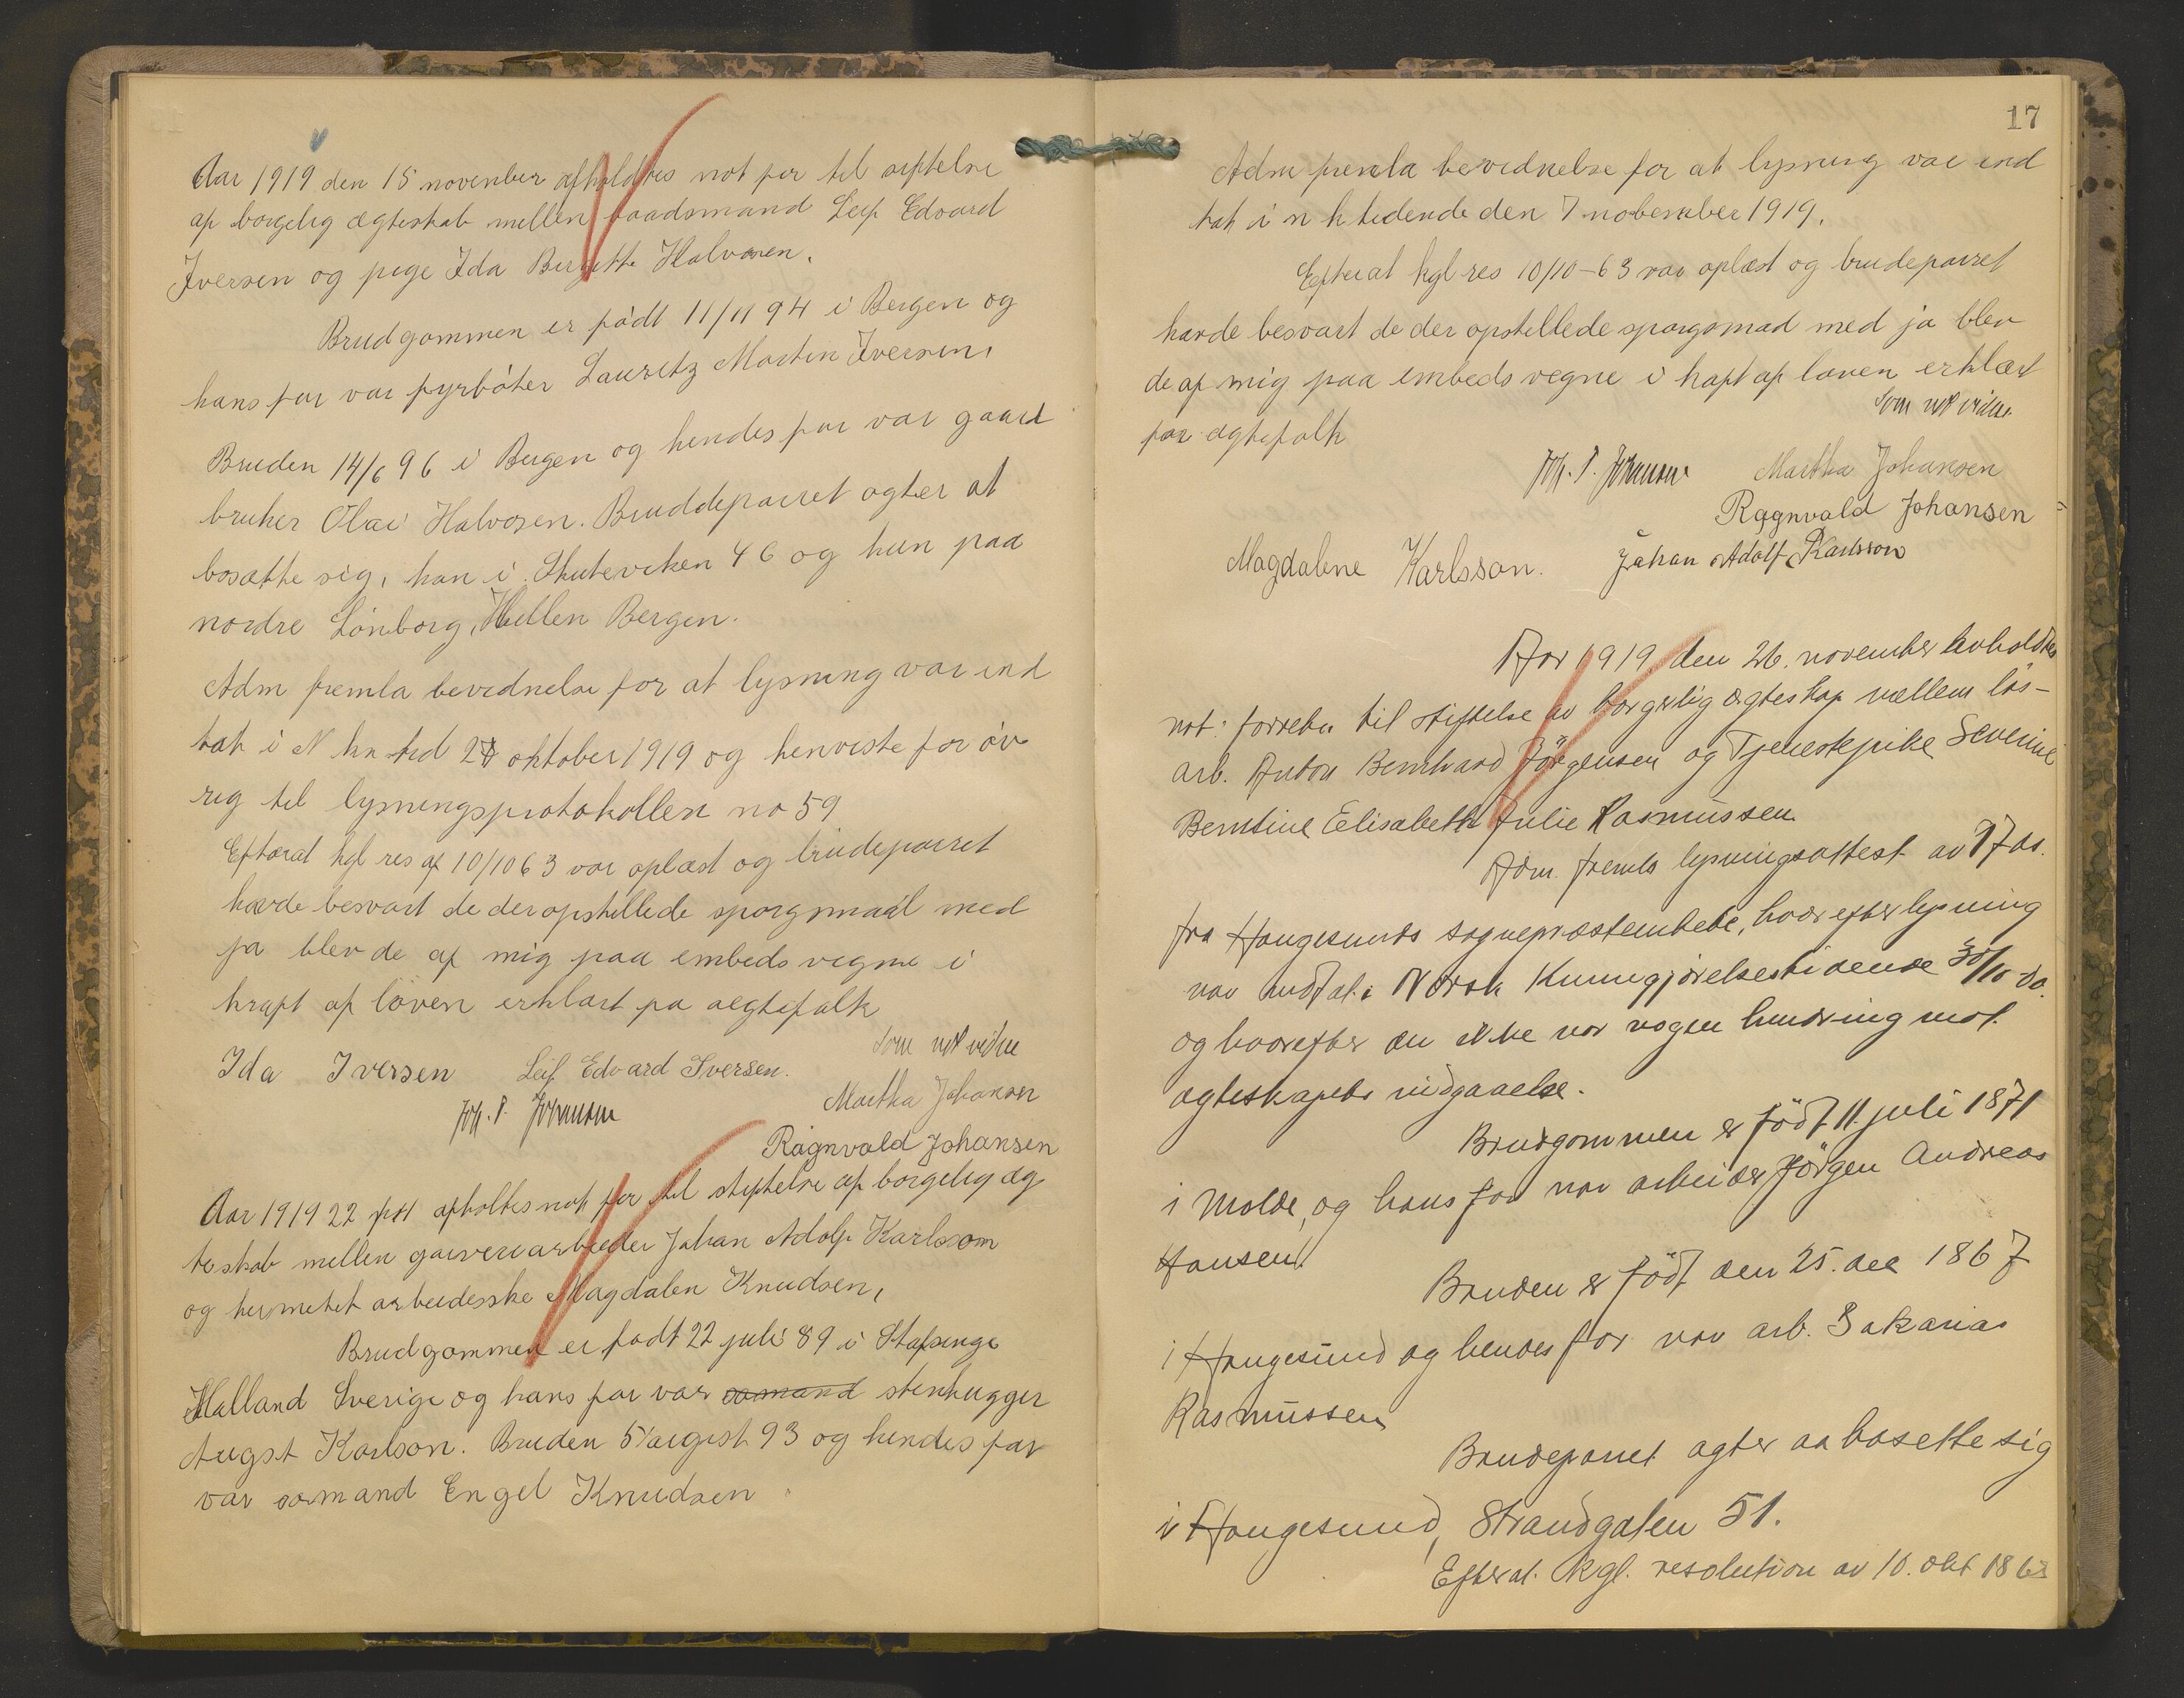 Aar 1919 den 15 november afholdtes not for til stiftelse
af borgelig ægteskab mellem baadsmand Leif Edvard
Iversen og pige Ida Birgitte Halvorsen.
Brudgommen er født 11/11 94 i Bergen og
hans far var fyrbøter Lauritz Martin Iversen.
Bruden 14/6 96 i Bergen og hendes far var gaard
bruker Olai Halvorsen. Bruddeparret agter at
bosætte sig, han i Skuteviken 46 og hun paa
nordre Lønborg, Hellen Bergen.
Adm fremla bevidnelse for at lysning var ind
tat i N kn tid 27 oktober 1919 og henviste for øv
rig til lysningsprotokollen no 59
Efterat kgl res af 10/10 63 var oplæst og brudeparret
havde besvart de der opstillede sporgsmaal med
ja blev de af mig paa embeds vegne i
kraft af loven erklært for ægtefolk
Som not vidne
Ida Iversen Leif Edvard Iversen.
Martha Johansen
Joh. P. Johnson
Ragnvald Johansen
Aar 1919 22 afholtes not for til stiftelse af borgelig æg
teskab mellem garveriarbeider Johan Adolf Karlsson
og hermetik arbeiderske Magdalen Knudsen,
Brudgommen er født 22 juli 89 i Stafsinge
Halland Sverige og hans far var oomand stenhugger
August Karlson. Bruden 5 august 93 og hendes far
var oormand Engel Knudsen
17
Adm fremla bevidnelse for at lysning var ind
tat i n k tidende den 7 november 1919.
Efterat kgl res 10/10-63 var oplæst og brudeparret
havde besvart de der opstillede sporgsmad med ja blev
de af mig paa embeds vegne i kraft af loven erklært
Som not vidne
for ægtefolk
Joh. P. Johnson Martha Johansen
Ragnvald Johansen
Magdalene Karlsson. Johan Adolf Karlsson
Aar 1919 den 26. november avholdtes
not: forretn til stiftelse av borgerlig ægteskap mellem løs-
arb. Anton Bernhard Jörgensen og Tjenestepike Severine
Berntine Elisabeth Julie Rasmussen
Adm. fremla lysningsattest av 17 ds.
fra Haugesunds sogneprestembede, hvorefter lysning
var indtat i Norsk Kunngjørelsestidende 30/10 do.
og hvorefter der ikke var nogen hindring mot
ægteskapets indgaaelse.
Brudgommen er född 11. juli 1871
i Molde, og hans far var arbeider Jörgen Andreas
Hansen.
Bruden er född den 25. dec 1867
i Haugesund og hendes far var arb. Sakarias
Rasmussen
Brudeparret agter aa bosette sig
i Haugesund, Strandgaten 51.
Efterat kgl. resolution av 10. okt 1863